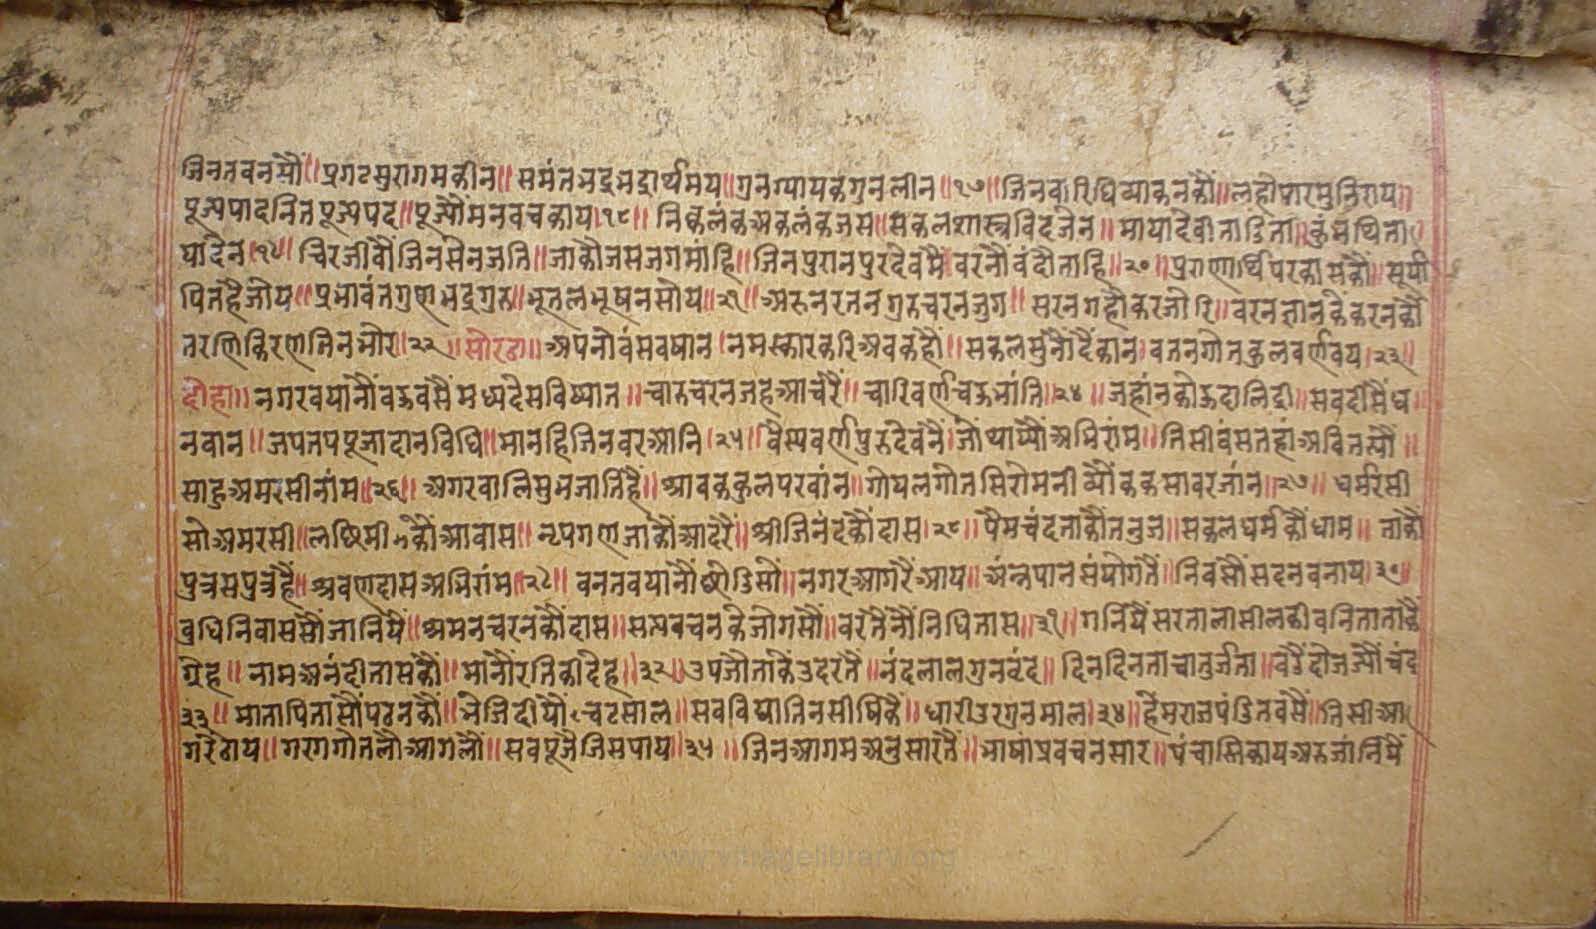 जिनतवनसौं॥ प्रगटसुरागमकीन॥ समंतभद्रभद्रार्थमय॥ गुनग्यायकगुनलीन॥१७॥ जिनवारिधिव्याकनकौं॥ लहीपारमुनिराय॥
पूज्यपादनितपूज्यपद॥ पूज्यौंमनवचकाय।१८॥ निकलंकअकलंकजस॥ सकलशास्त्रविदजेन॥ मायादेवीताडिता॥ कुंभथिता॥
पादेन।१९॥ चिरजीवौंजिनसेनजति॥ जाकौजसजगमांहि॥ जिनपुरानपुरदेवमै॥ वरनौवंदौताहि॥२०॥
पितहैजीय॥ प्रभावंतगुणभद्रगुरु॥ भूतलभूषनसोय॥२१॥ अरुनरतनगुरुचरनजुग॥ सरनगहौकरजोरि॥ वरनज्ञानकेकरनकौं
तरणिकिरणजिनभोर॥२२॥ सोरठा॥ अपनोवंसवषान। नमस्कारकरिअबकहौं॥ सकलसुनोंदैकान। वतनगोतकुलवर्णवय।२३॥
दोहा॥ नगरवयानौंबहुवसैं मध्यदेसविष्यात॥ चारुचरनजहआचरैं॥ चारिवर्णबहुभांति॥२४॥ जहांनकोऊदालिद्री॥ सबदीसैंध
नवान॥ जपतपपूजादानविधि॥ मानहिजिनवरआनि।२५। वैस्यवर्णपुरुदेवनैं। जोथाप्यौअभिराम॥ तिसीवंसतहांअवितस्यौ॥
साहुअमरसीनाम॥२६॥ अगरवालिसुभजातिहैं॥ श्रावककुलपरवांन॥ गोयलगोतसिरोमनी। व्यौंककसावरजांन॥२७॥ धर्मरसी
सोअमरसी॥ लछिमीकौंआवास॥ नृपगणजाकौंआदरैं॥ श्रीजिनंदकौंदास।२८॥ पेमचंदताकौंतनुज॥ सकलधर्मकौंधाम॥ ताकौ
पुत्रसपुत्रहैं॥ श्रवणदासअभिरांम॥२९॥ वतनवयानौंछोडिसो॥ नगरआगरैंआय॥ अंन्नपानसंयोगतैं॥ निवसौंसदनबनाय।३०॥
बुधिनिवाससौंजानियैं॥ श्रमनचरनकौंदास॥ सत्यवचनकेजोगसौं॥ वरतैनौनिधितास॥३१॥ गनियैंसरतालासीलकीवनितातोकैं
ग्रेह॥ नामअनंदीतासकौं॥ मानौंरतिकीदेह॥३२॥ उपजौताकेउदरतैं॥ नंदलालगुनवृंद॥ दिनदिनतनचातुर्जता॥ बढैंदोजज्यौंचंद
३३॥ मातापितासौंपढनकौं॥ भेजिदीयौंचटसाल॥ सबविद्यातिनसीषिकैं॥ धारीउरगुनमाल।३४॥ हेमराजपंडितवसैं॥ तिसीआ
गरैठाय॥ गरगगोतलौआगलौं॥ सबपूजैजिसपाय॥३५॥ जिनआगमअनुसारतैं॥ भाषाप्रवचनसार॥ पंचास्तिकायअरुजांनियैं